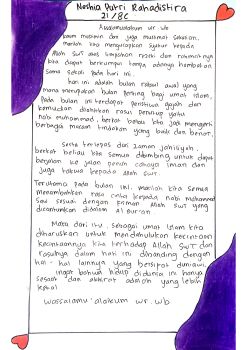 Neshia Putri Rahadistira
21/8C
Assalamualaikum wr. wb
kaum muslimin dan juga muslimat sekalian,
Marilah kita mengucapkan syukur kepada
Allah SWT atas limpahan rizki dan rahmatnya
kita dapat berkumpul tanpa adanya hambatan
sama sekali pada hari ini.
hari ini adalah bulan rabiul awal yang
mana merupakan bulan penting bagi umat islam.
Pada bulan ini terdapat peristiwa ajaib dan
kemudian dilahirkan rosul penutup yaitu
nabi muhammad, berkat beliau kita jadi mengerti
berbagai macam tindakan yang baik dan benar.
Serta terlepas dari zaman jahiliyah,
berkat beliau kita semua dibimbing untuk dapat
berjalan ke jalan penuh cahaya iman dan
juga takwa kepada Allah SWT.
Terutama pada bulan ini, marilah kita semua
menambahkan rasa cinta kepada nabi muhammad
saw sesuai dengan firman Allah SWT yang
dicantumkan didalam al quran
Maka dari itu, sebagai umat islam kita
diharuskan untuk mendahulukan kecintaan
kecintaannya kita terhadap Allah SWT dan
rosulnya dalam hal ini dibanding dengan
hal-hal lainnya yang bersifat duniawi,
ingat bahwa hidup didunia ini hanya
sesaat dan akhirat adalah yang lebih
kekal
wassalamu'alaikum wr. wb.